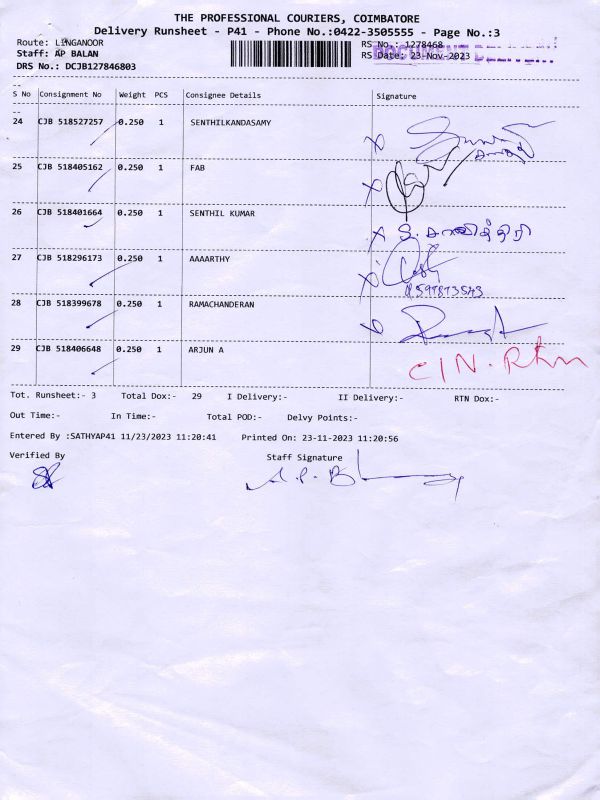 THE PROFESSIONAL COURIERS, COIMBATORE
Delivery Runsheet - P41 - Phone No.:0422-3505555 - Page No.:3
Route: LINGANOOR
RS No.: 1278468
Staff: AP BALAN
RS Date: 23-Nov-2023
DRS No.: DCJB127846803
S No Consignment No Weight PCS Consignee Details Signature
24 CJB 518527257 0.250 1 SENTHILKANDASAMY
25 CJB 518405162 0.250 1 FAB
26 CJB 518401664 0.250 1 SENTHIL KUMAR
27 CJB 518296173 0.250 1 AAAARTHY
28 CJB 518399678 0.250 1 RAMACHANDERAN
29 CJB 518406648 0.250 1 ARJUN A
C/N. Rtn
Tot. Runsheet:- 3 Total Dox:- 29 I Delivery:- II Delivery:- RTN Dox:-
Out Time:- In Time:- Total POD:- Delvy Points:-
Entered By :SATHYAP41 11/23/2023 11:20:41 Printed On: 23-11-2023 11:20:56
Verified By Staff Signature
A.P.B